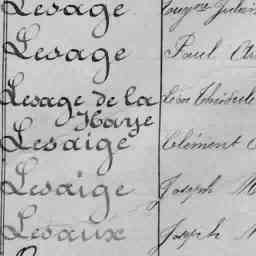 Lesage
Lesage Paul
Lesage de la
Haye
Lesaige Clément
Lesaige Joseph M
Lesaux Joseph